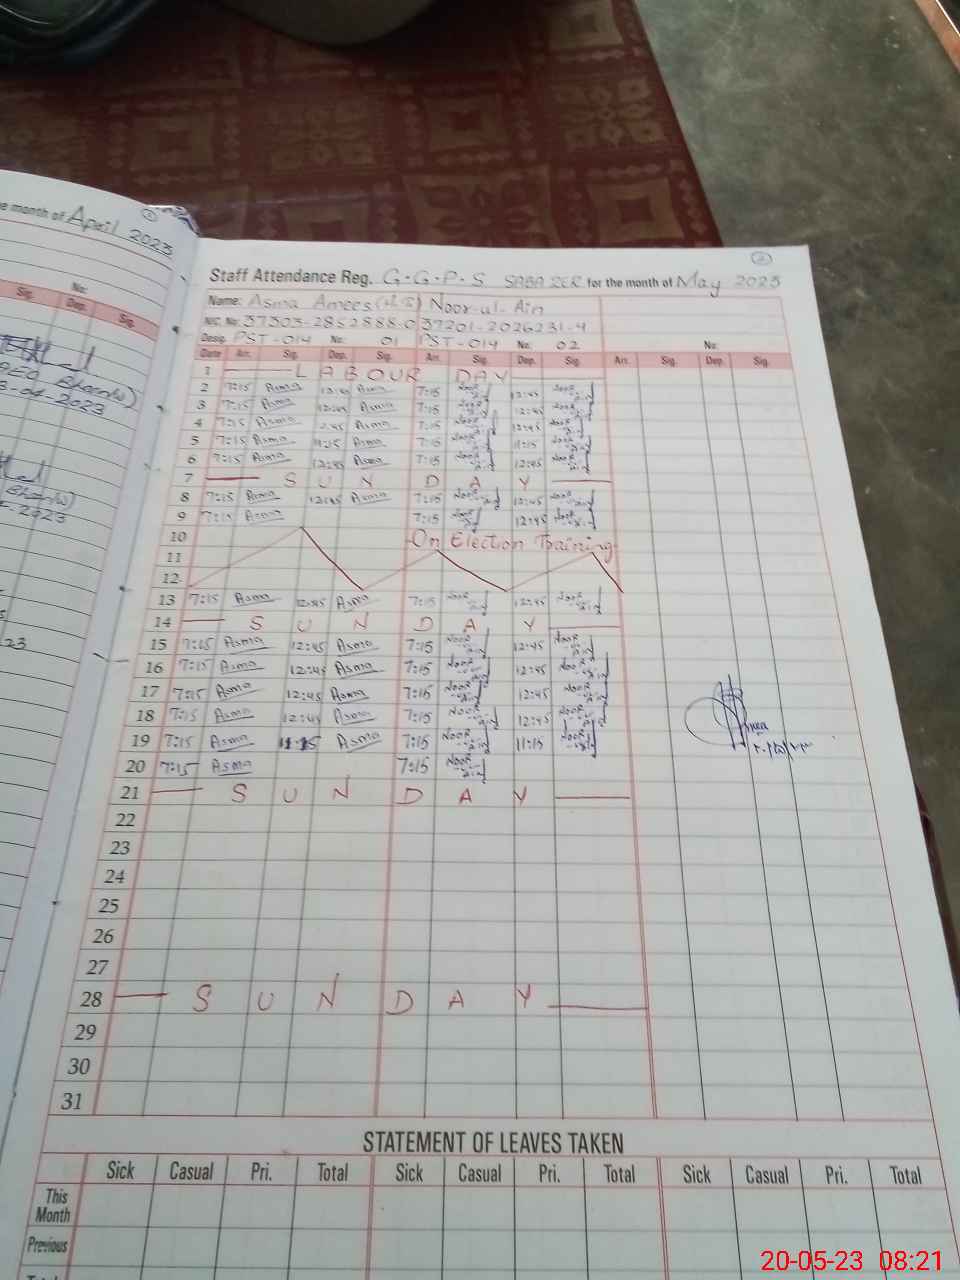 e month of April 2023
Sig. No: Dep. Sig.
Staff Attendance Reg. G.G.P.S for the month of May 2023
Name: Asma Noor-ul-Ain
N.I.C. No: 37303-2852888-0 37201-2026231-4
Desig. PST-014 No: 01 PST-014 No: 02 No: No:
Date Arr. Sig. Dep. Sig. Arr. Sig. Dep. Sig. Arr. Sig. Dep. Sig.
1 LABOUR DAY
2 7:15 Asma 12:45 Asma 7:15 Noor-ul-Ain 12:45 Noor-ul-Ain
3 7:15 Asma 12:45 Asma 7:15 Noor-ul-Ain 12:45 Noor-ul-Ain
4 7:15 Asma 12:45 Asma 7:15 Noor-ul-Ain 12:45 Noor-ul-Ain
5 7:15 Asma 11:15 Asma 7:15 Noor-ul-Ain 11:15 Noor-ul-Ain
6 7:15 Asma 12:45 Asma 7:15 Noor-ul-Ain 12:45 Noor-ul-Ain
7 SUNDAY
8 7:15 Asma 12:45 Asma 7:15 Noor-ul-Ain 12:45 Noor-ul-Ain
9 7:15 Asma 7:15 Noor-ul-Ain 12:45 Noor-ul-Ain
10 On Election Training
11
12
13 7:15 Asma 12:45 Asma 7:15 Noor-ul-Ain 12:45 Noor-ul-Ain
14 SUNDAY
15 7:15 Asma 12:45 Asma 7:15 Noor-ul-Ain 12:45 Noor-ul-Ain
16 7:15 Asma 12:45 Asma 7:15 Noor-ul-Ain 12:45 Noor-ul-Ain
17 7:15 Asma 12:45 Asma 7:15 Noor-ul-Ain 12:45 Noor-ul-Ain
18 7:15 Asma 12:45 Asma 7:15 Noor-ul-Ain 12:45 Noor-ul-Ain
19 7:15 Asma 11:15 Asma 7:15 Noor-ul-Ain 11:15 Noor-ul-Ain
20 7:15 Asma 7:15 Noor-ul-Ain
21 SUNDAY
22
23
24
25
26
27
28 SUNDAY
29
30
31
STATEMENT OF LEAVES TAKEN
Sick Casual Pri. Total Sick Casual Pri. Total Sick Casual Pri. Total
This Month
Previous
20-05-23 08:21